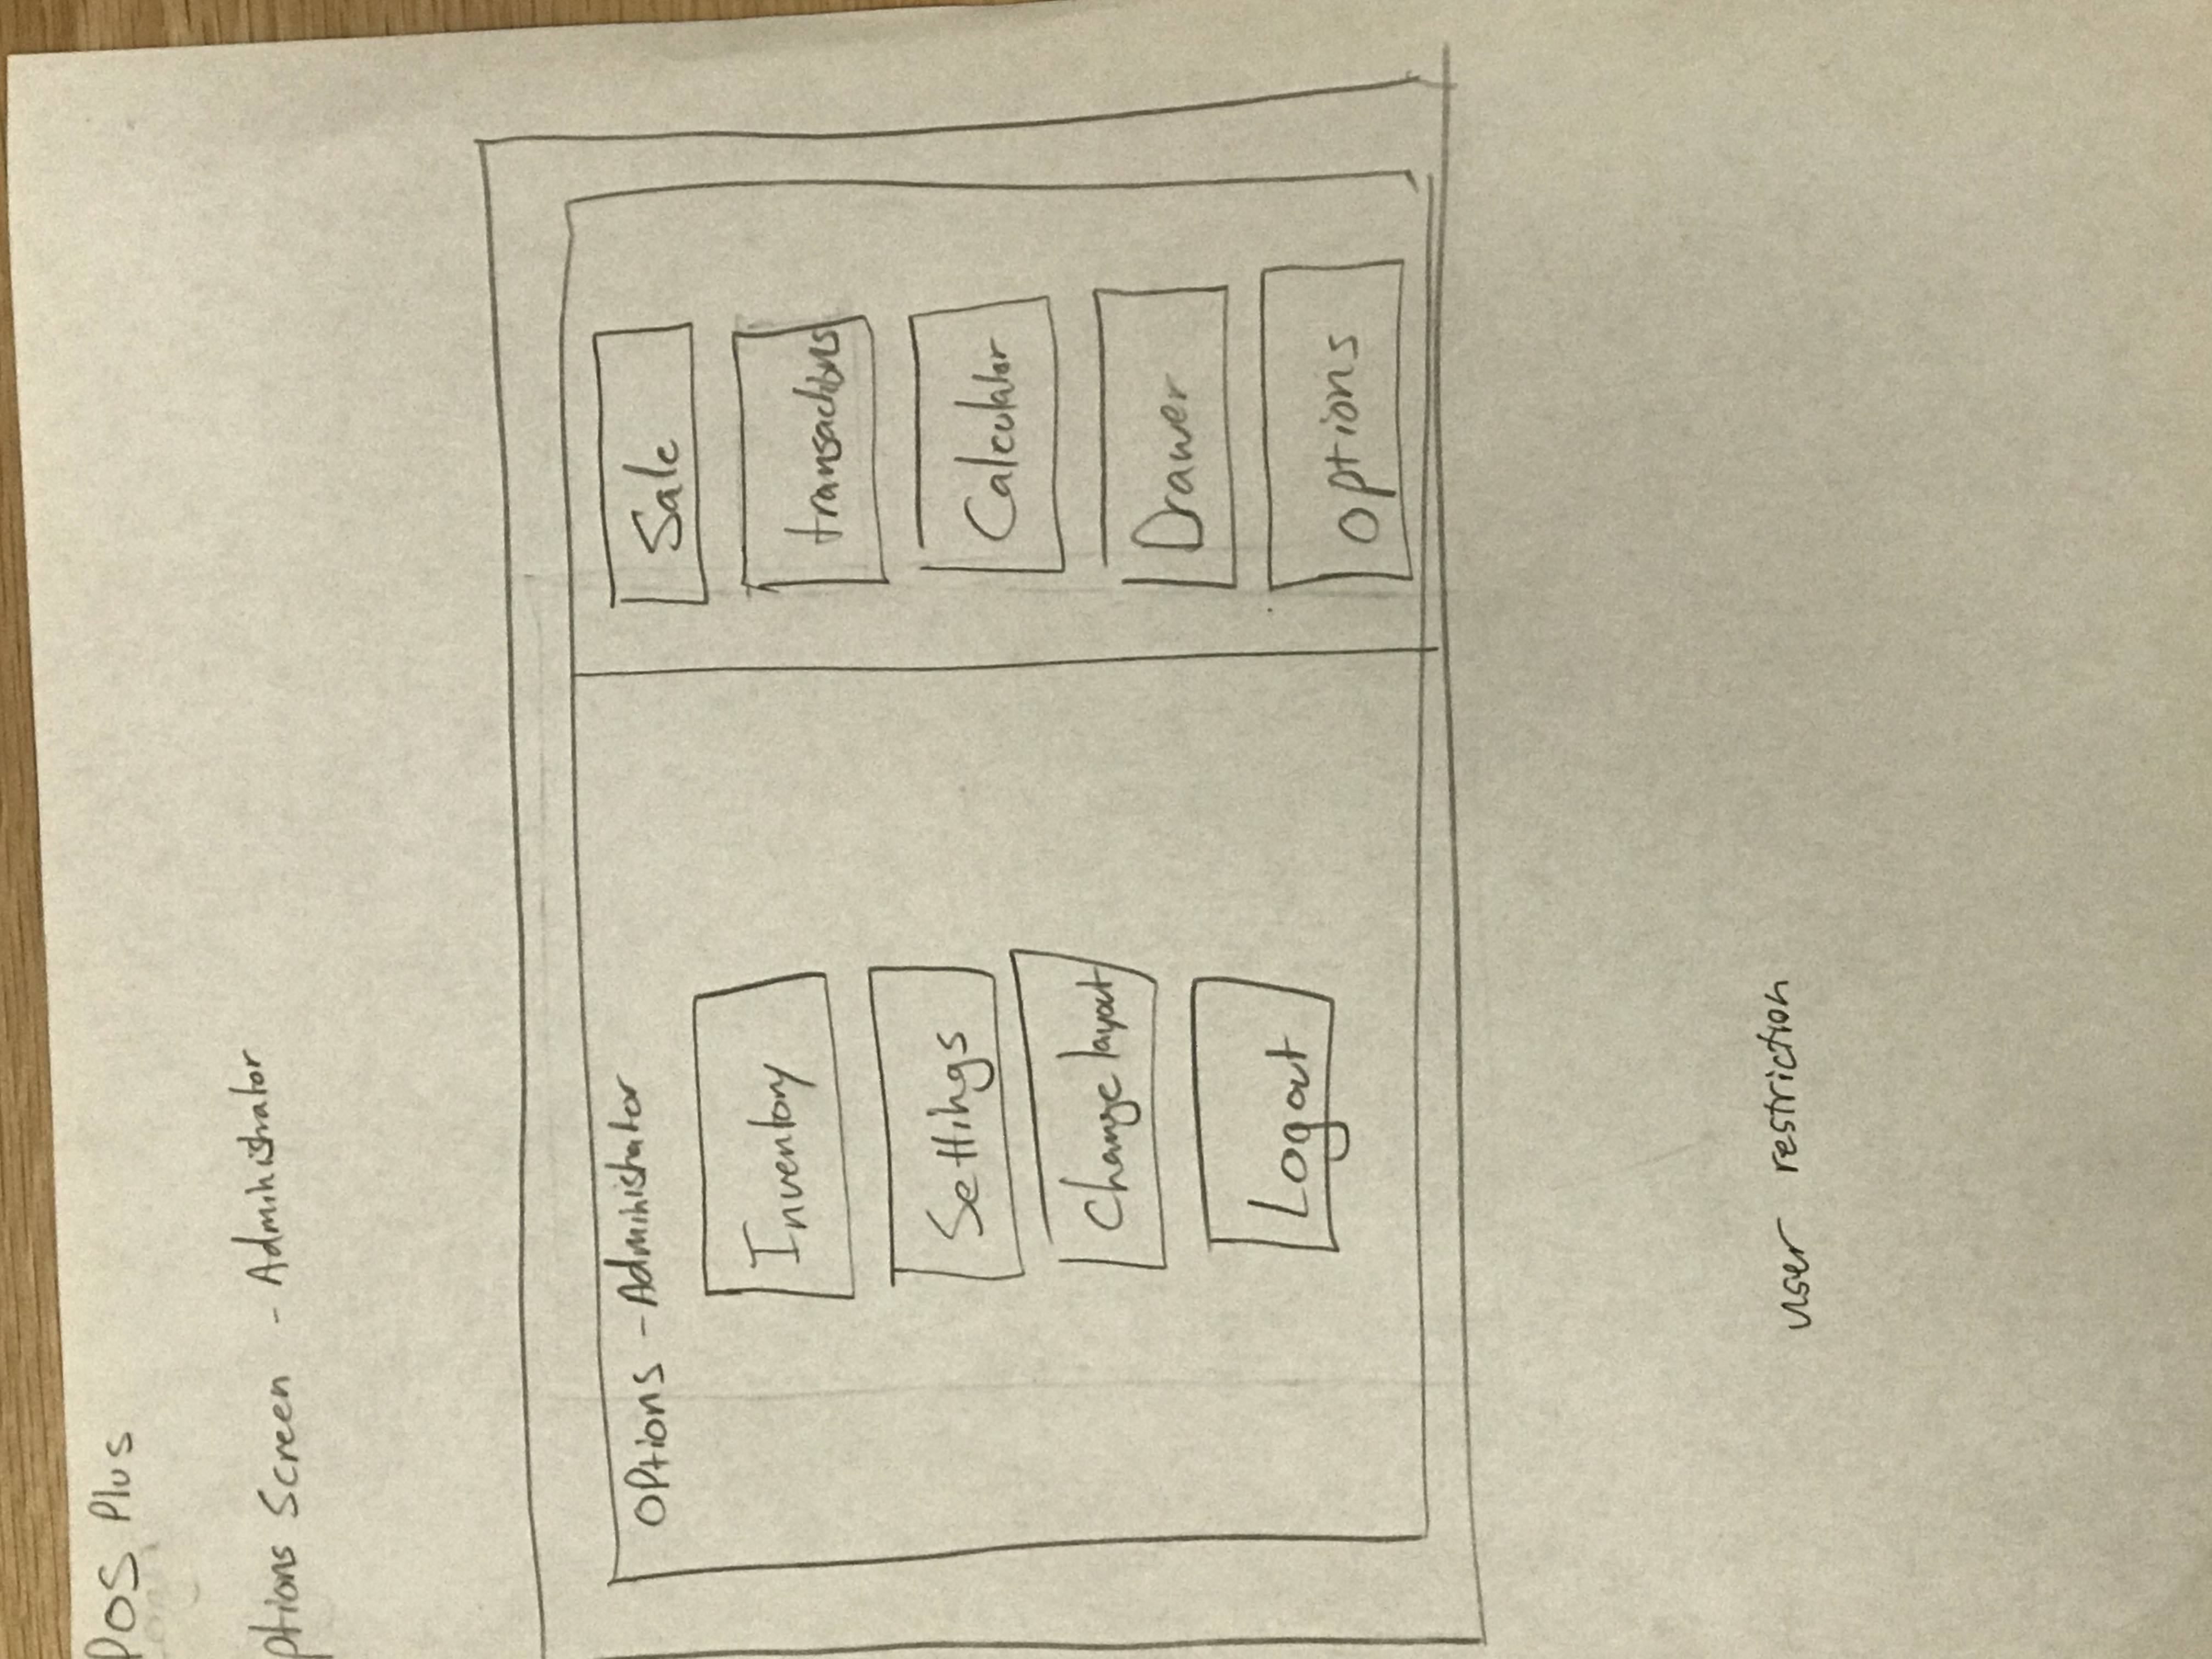 POS Plus
ptions Screen - Administrator
Options - Administrator
Inventory
Settings
Change layout
Logout
Sale
transactions
Calculator
Drawer
options
user restriction